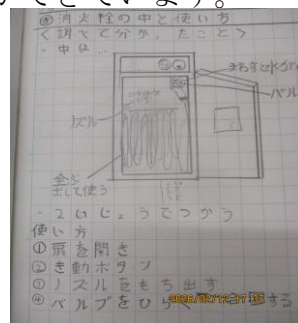 できています。
④消火栓の中と使い方
<調べて分かったこと>
・中は…
まわすと水が
バル
ノズル
全ぶ
出して使う
・2いじょうでつかう
使い方
①扉を開き
②き動ボタン
③ノズルをもち出す
④バルブをひらく
する